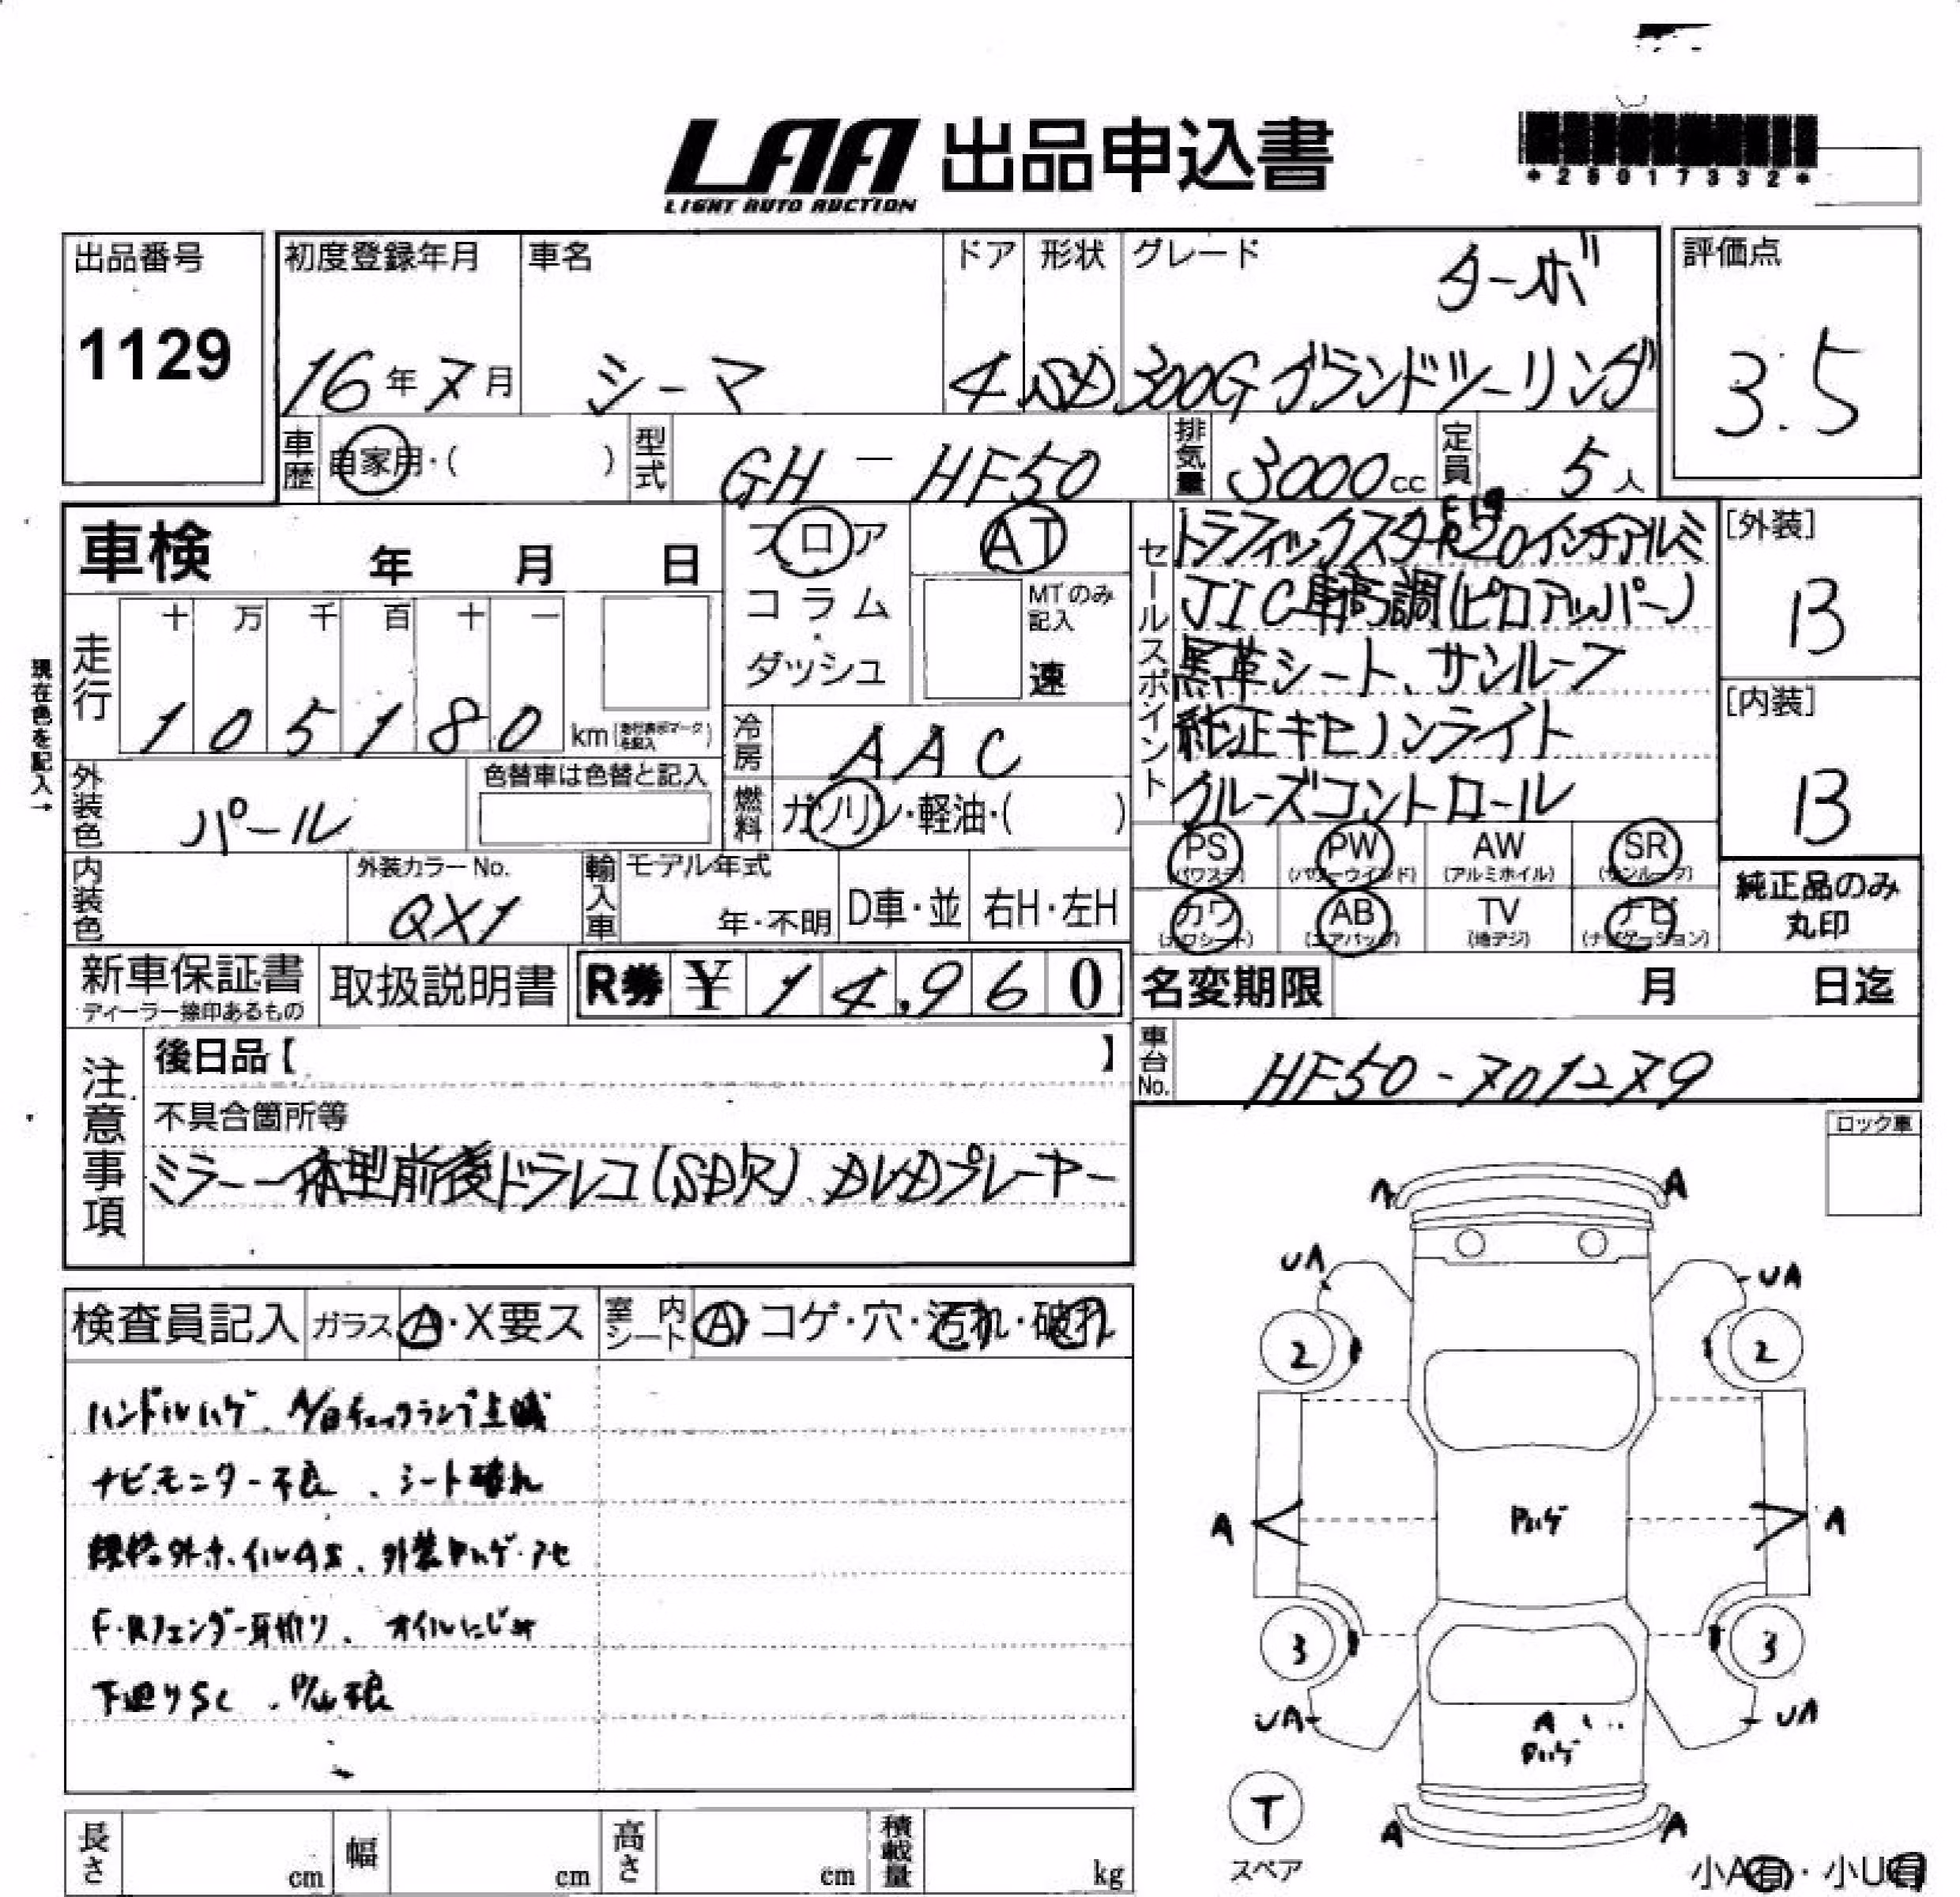 LAA 出品申込書
LIGHT AUTO AUCTION
*25017332*
出品番号
1129
初度登録年月
16年7月
車名
シーマ
ドア
4
形状
SD
グレード
ターボ
300Gグランドツーリング
評価点
3.5
車歴 自家用・( )
型式 GH-HF50
排気量 3000cc
定員 5人
車検 年 月 日
フロア
コラム
・
ダッシュ
AT
MTのみ記入
速
セールスポイント
F19
トラフィックスターR20インチアルミ
JIC車高調(ピロアッパー)
黒革シート、サンルーフ
純正キセノンライト
クルーズコントロール
[外装]
B
[内装]
B
現在色を記入→
走行
十 万 千 百 十 一
1 0 5 1 8 0 km
冷房 AAC
燃料 ガソリン・軽油・( )
外装色 パール
色替車は色替と記入
内装色
外装カラーNo.
QX1
輸入車
モデル年式
年・不明
D車・並
右H・左H
PS (パワステ)
PW (パワーウインド)
AW (アルミホイル)
SR (サンルーフ)
カワ (カワシート)
AB (エアバッグ)
TV (地デジ)
ナビ (ナビゲーション)
純正品のみ
丸印
新車保証書
ディーラー捺印あるもの
取扱説明書
R券 ¥14,960
名変期限 月 日迄
車台No. HF50-701279
注意事項
後日品【 】
不具合箇所等
ミラー一体型前後ドラレコ(SDR)、DVDプレーヤー
ロック車
検査員記入 ガラス A・X要ス
室内シート A・コゲ・穴・汚れ・破れ
ハンドルハゲ、A/Bチェックランプ点滅
ナビモニター不良、シート破れ
規格外ホイルAS、外装Pハゲ・アセ
F・Rフェンダー耳折り、オイルにじみ
下廻りSC、P/W不良
A A
UA UA
2 2
A Pハゲ A
3 3
UA UA
A
Pハゲ
T
スペア
A A
小A有・小U有
長さ cm
幅 cm
高さ cm
積載量 kg